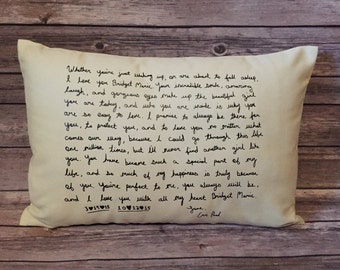 Whether you're just waking up, or are about to fall asleep,
I love you Bridget Marie. Your incredible smile, amazing
laugh, and gorgeous eyes make up the beautiful girl
you are today, and who you are inside is why you
are so easy to love. I promise to always be there for
you, to protect you, and to love you no matter what
comes our way, because I could go through this life
one million times, but I'll never find another girl like
you. You have become such a special part of my
life, and so much of my happiness is truly because
of you. You're perfect to me, you always will be,
and I love you with all my heart Bridget Marie.